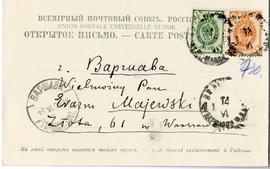 ВСЕМІРНЫЙ ПОЧТОВЫЙ СОЮЗЪ. РОССІЯ
UNION POSTALE UNIVERSELLE. RUSSIE
ОТКРЫТОЕ ПИСЬМО. — CARTE POSTALE
г. Варшава
Wielmożny Pan
Erazm Majewski
Złota, 61 w Warszawie
ВАРШАВА
14
На этой сторонѣ пишется только адресъ. — Côté réservé exclusivement à l'adresse.